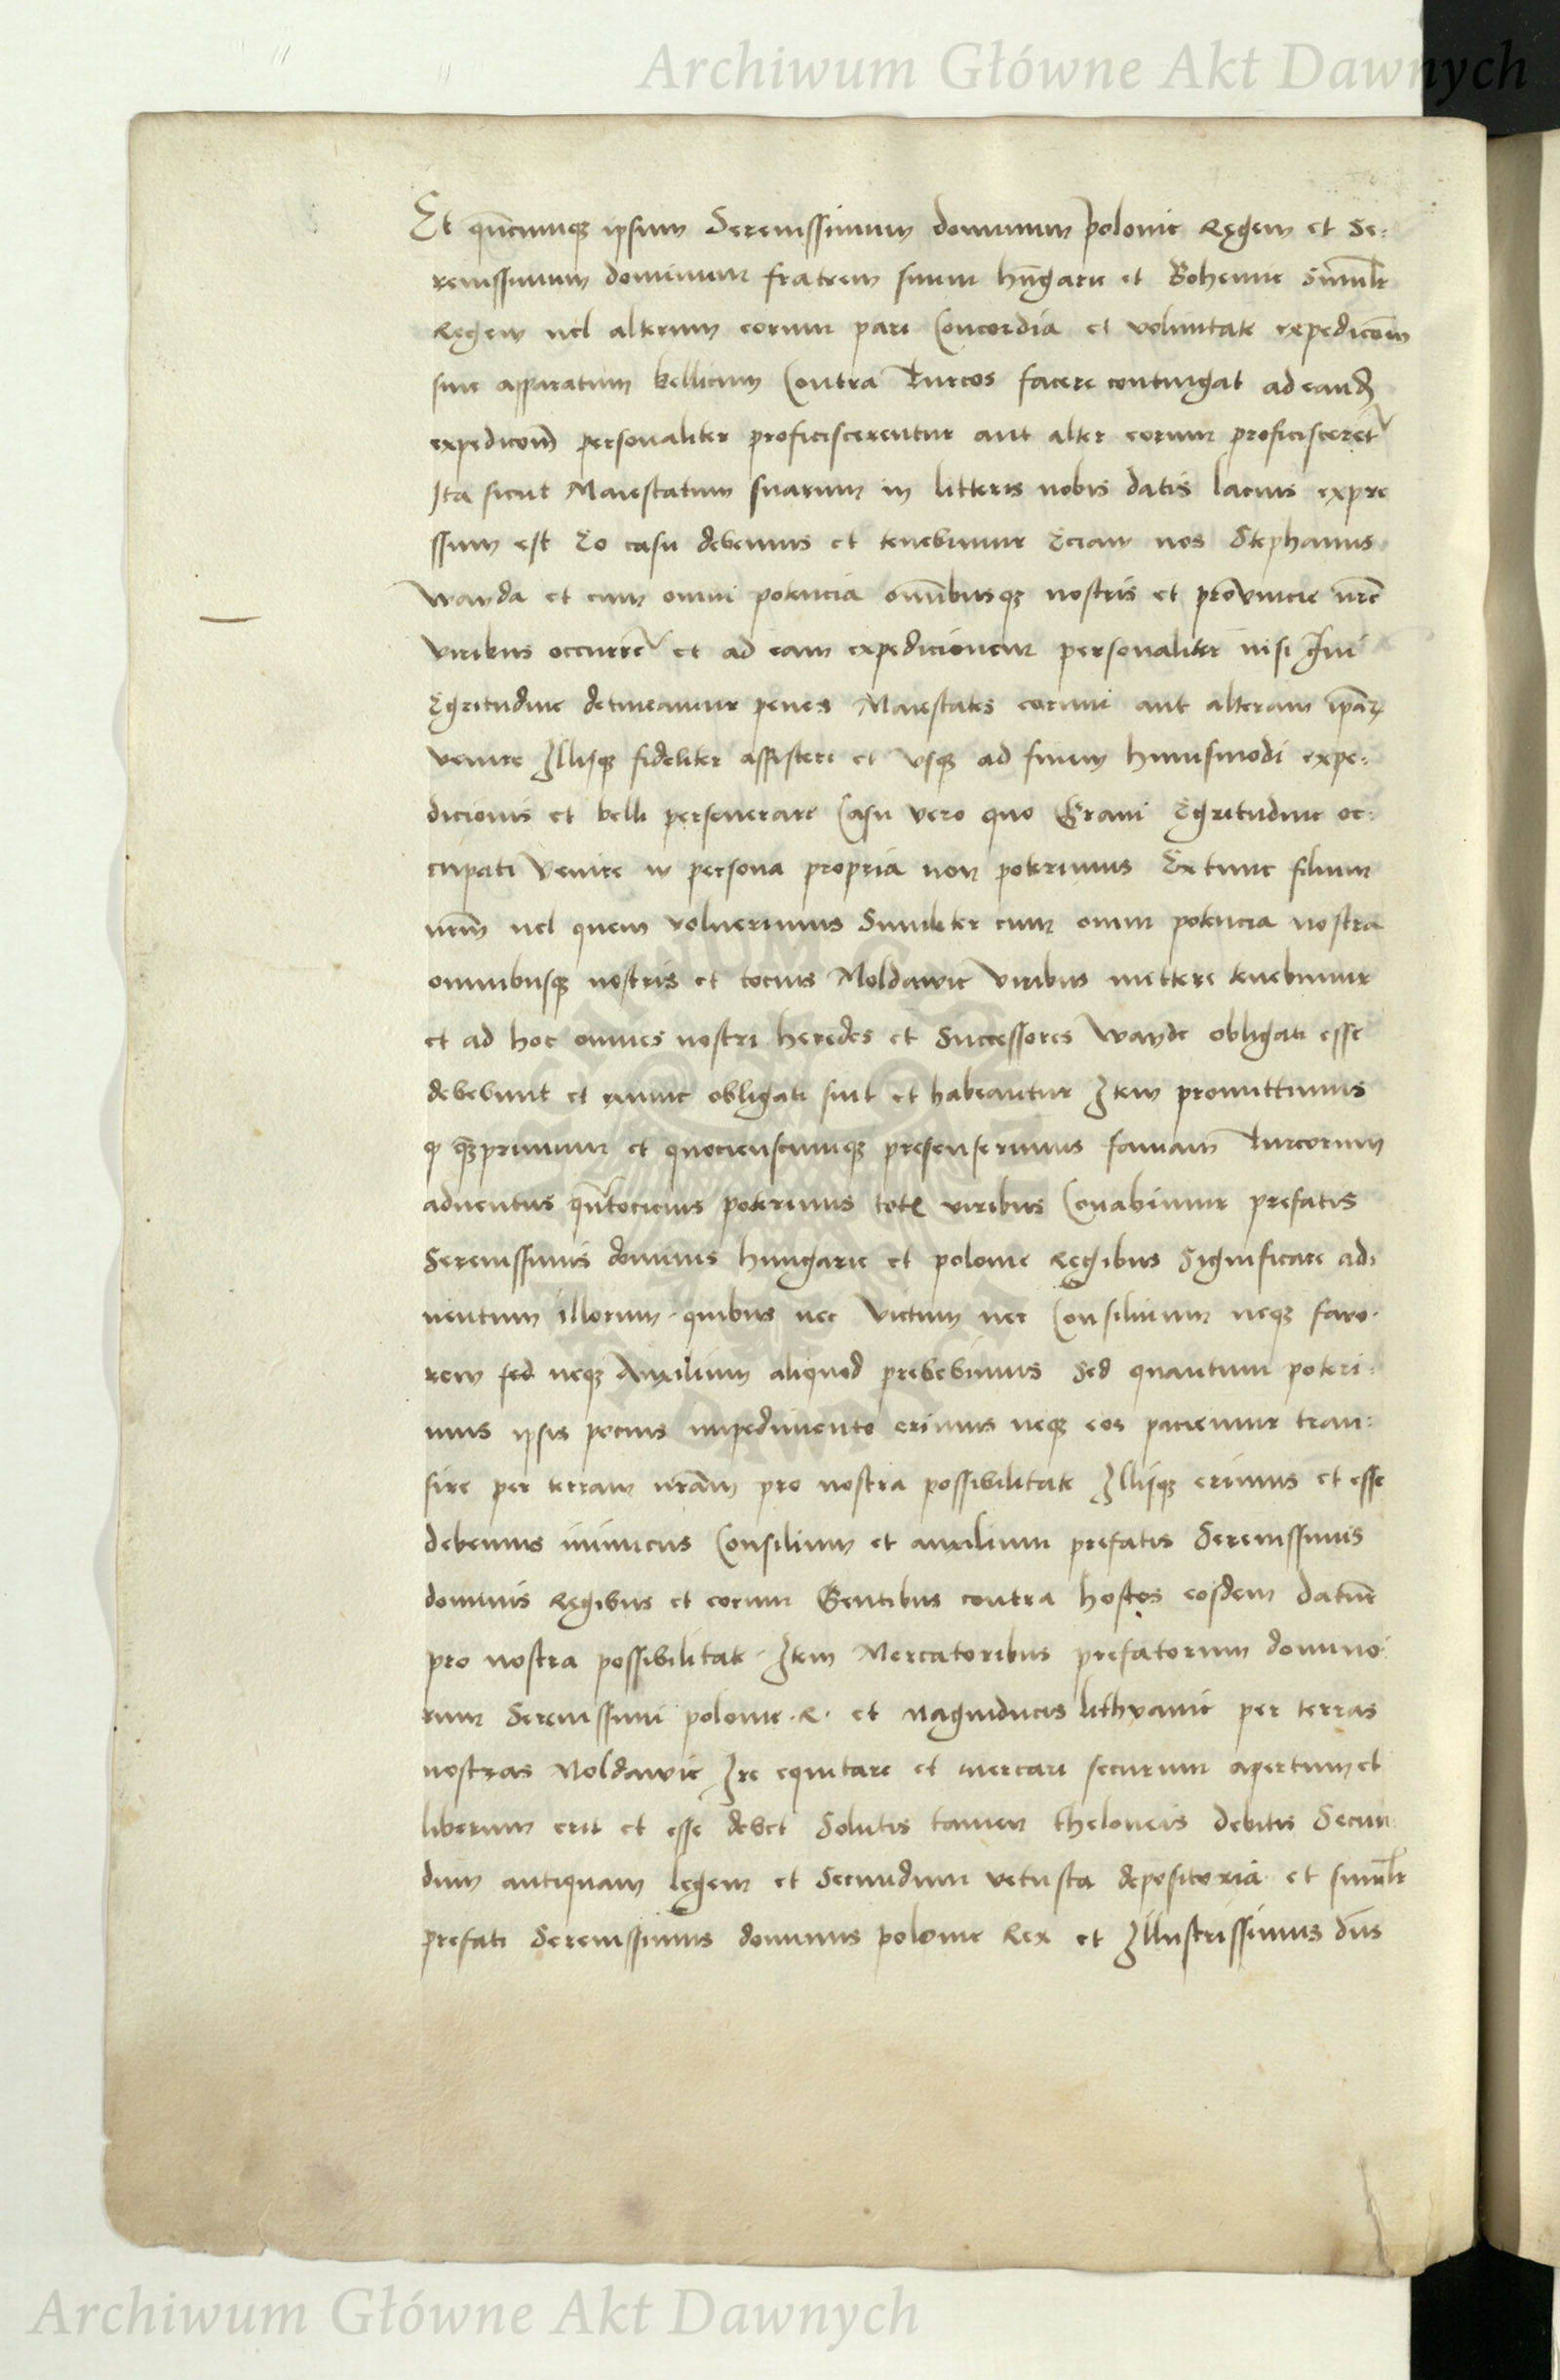 Archiwum Główne Akt Dawnych
Et qn̄cumqꝫ ipsum Serenissimum dominum polonie Regem et Se:
renissimum dominum fratrem suum hūgarie et Bohemie Simil̄r
Regem uel alterum eorum pari Concordia et voluntate expedicōm
siue apparatum bellicum Contra Turcos facere contingat ad eandꝫ
expedicōm personaliter proficiscerentur aut alter eorum proficisceret᷑
Ita sicut Maiestatum suarum in litteris nobis datis lacius expre
ssum est Eo casu debemus et tenebimur Eciam nos Stephanus
wayda et cum omni potencia omībusqꝫ nostris et prouincie nr̄e
viribus occurrere et ad eam expedicionem personaliter nisi gͣui
Egritudine detineamur penes Maiestates eorum aut alteram ip̄aꝝ
venire Illisqꝫ fideliter assistere et vsqꝫ ad finem huiusmodi expe:
dicionis et belli perseuerare Casu vero quo Graui Egritudine oc:
cupati venire in persona propria non poterimus Ex tunc filium
nrm̄ uel quem voluerimus Similiter cum omni potencia nostra
omnibusqꝫ nostris et tocius Moldawie viribus mittere tenebimur
et ad hoc omnes nostri heredes et Successores wayde obligati esse
debebunt et nunc obligati sint et habeantur Item promittimus
ꝙ qꝫprimum et quocienscumqꝫ presenserimus famam Turcorum
aduentus qn̄tocicius poterimus totꝭ viribus Conabimur prefatis
Serenissimis dominis hungarie et polonie Regibus Significare ad:
uentum illorum · quibus nec victum nec Consilium neqꝫ fauo·
rem sed neqꝫ Auxilium aliquod prebebimus Sed quantum poteri:
mus ipsis pocius impedimento erimus neqꝫ eos paciemur tran:
sire per terram nrām pro nostra possibilitate Illisqꝫ erimus et esse
debemus inimicus Consilium et auxilium prefatis Serenissimis
dominis Regibus et eorum Gentibus contra hostes eosdem daturi
pro nostra possibilitate · Item Mercatoribus prefatorum domino:
rum Serenissimi polonie · R · et Magniducis lithvanie per terras
nostras Moldawie Ire equitare et mercari securum apertum et
liberum erit et esse debet Solutis tamen theloneis debitis Secun
dum antiquam legem et Secundum vetusta depositoria et simil̄r
prefati Serenissimus dominus polonie Rex et Illustrissimus dn̄s
Archiwum Główne Akt Dawnych